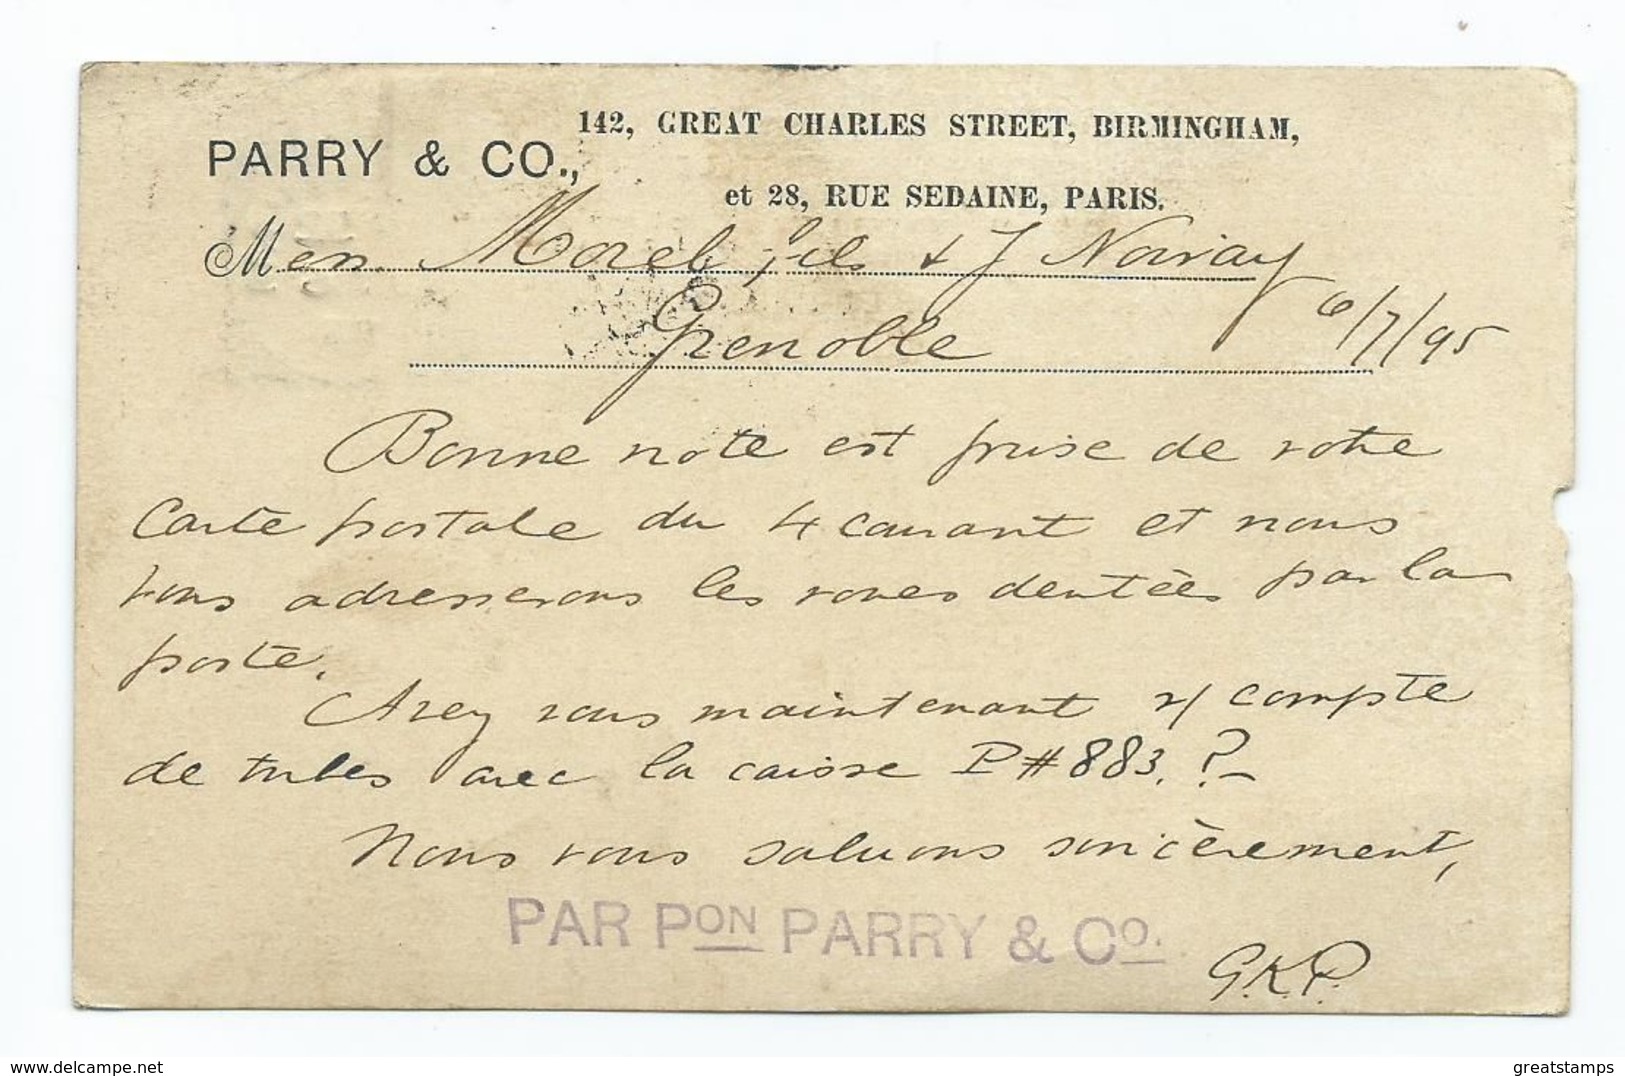 PARRY & CO.,
142, GREAT CHARLES STREET, BIRMINGHAM,
et 28, RUE SEDAINE, PARIS.
Mess. Morel fils & J Noiray
Grenoble 6/7/95
Bonne note est prise de votre
Carte postale du 4 courant et nous
vous adresserons les roues dentées par la
poste.
Avez vous maintenant v/ compte
de tubes avec la caisse P#883.?
Nous vous saluons sincèrement,
PAR PON PARRY & CO.
G.K.P.
delcampe.net
greatstamps